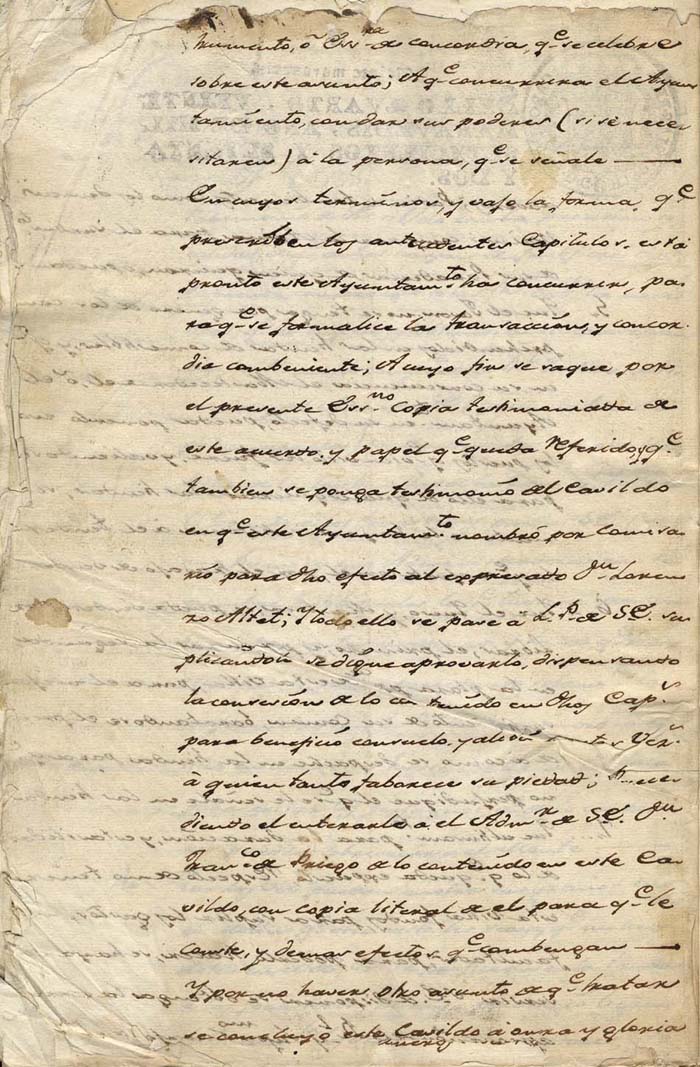 trumento, ó Ess.ra de concordia, q.e se celebre
sobre este asunto; A q.e concurrira el Ayun
tamiento, con dar sus poderes (si se nece
sitaren) á la persona, q.e se señale
En cuyos terminos, y vajo la forma, q.e
prescriben los antecedentes Capitulos, está
pronto este Ayuntam.to ha concurrir, pa
ra q.e se formalice la transacción, y concor
dia combeniente; A cuyo fin se saque por
el presente Ess.no Copia testimoniada de
este acuerdo, y papel q.e queda referido, y q.e
tambien se ponga testimonio del Cavildo
en q.e este Ayuntam.to nombró por Comisa
rio para dho efecto al expresado D.n Loren
zo Altet; Y todo ello se pase á L. P. de S.E. su
plicandole se digne aprovarlo, dispensando
la consesión de lo con tenido en dhos Cap.s
para beneficio consuelo, y alivio
á quien tanto faborece su piedad;
diendo el enterarle á el Adm.r de S.E. D.n
Fran.co de Priego de lo contenido en este Ca
vildo, con copia literal de el para q.e le
conste, y demas efectos q.e combengan
Y por no haver otro asunto de q.e tratar
se concluyó este Cavildo á onra y gloria